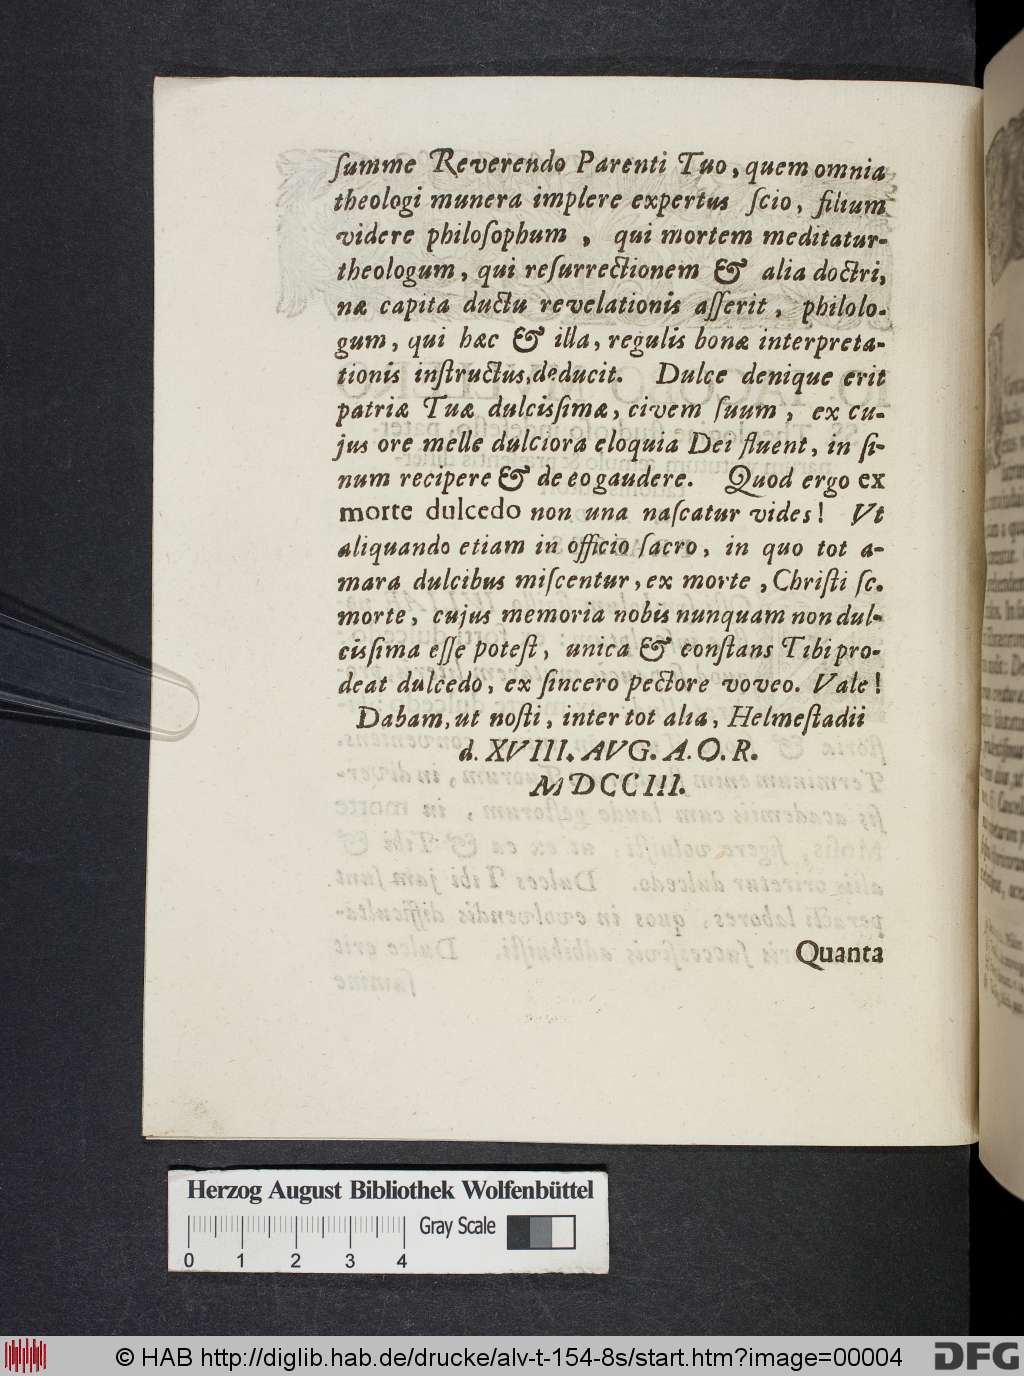 ſumme Reverendo Parenti Tuo, quem omnia
theologi munera implere expertus ſcio, filium
videre philoſophum , qui mortem meditatur-
theologum, qui reſurrectionem & alia doctri,
næ capita ductu revelationis aſſerit, philolo-
gum, qui hæc & illa, regulis bonæ interpreta-
tionis inſtructus, deducit. Dulce denique erit
patriæ Tuæ dulcisſimæ, civem ſuum, ex cu-
jus ore melle dulciora eloquia Dei fluent, in ſi-
num recipere & de eo gaudere. Quod ergo ex
morte dulcedo non una naſcatur vides! Vt
aliquando etiam in officio ſacro, in quo tot a-
mara dulcibus miſcentur, ex morte, Chriſti ſc.
morte, cujus memoria nobis nunquam non dul-
cisſima eſſe poteſt, unica & conſtans Tibi pro-
deat dulcedo, ex ſincero pectore voveo. Vale!
Dabam, ut noſti, inter tot alia, Helmeſtadii
d. XVIII. AVG. A. O. R.
MDCCIII.
Quanta
Herzog August Bibliothek Wolfenbüttel
Gray Scale
0 1 2 3 4
© HAB http://diglib.hab.de/drucke/alv-t-154-8s/start.htm?image=00004
DFG